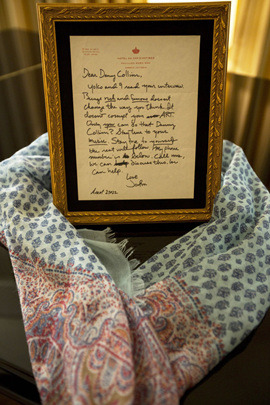 Dear Danny Collins,
Yoko and I read your interview.
Being rich and famous doesn't
change the way you think. It
doesn't corrupt your ART.
Only you can do that Danny
Collins? Stay true to your
music. Stay true to
the rest will follow. My phone
number is below. Call me,
we can discuss this, we
can help.
Love
John